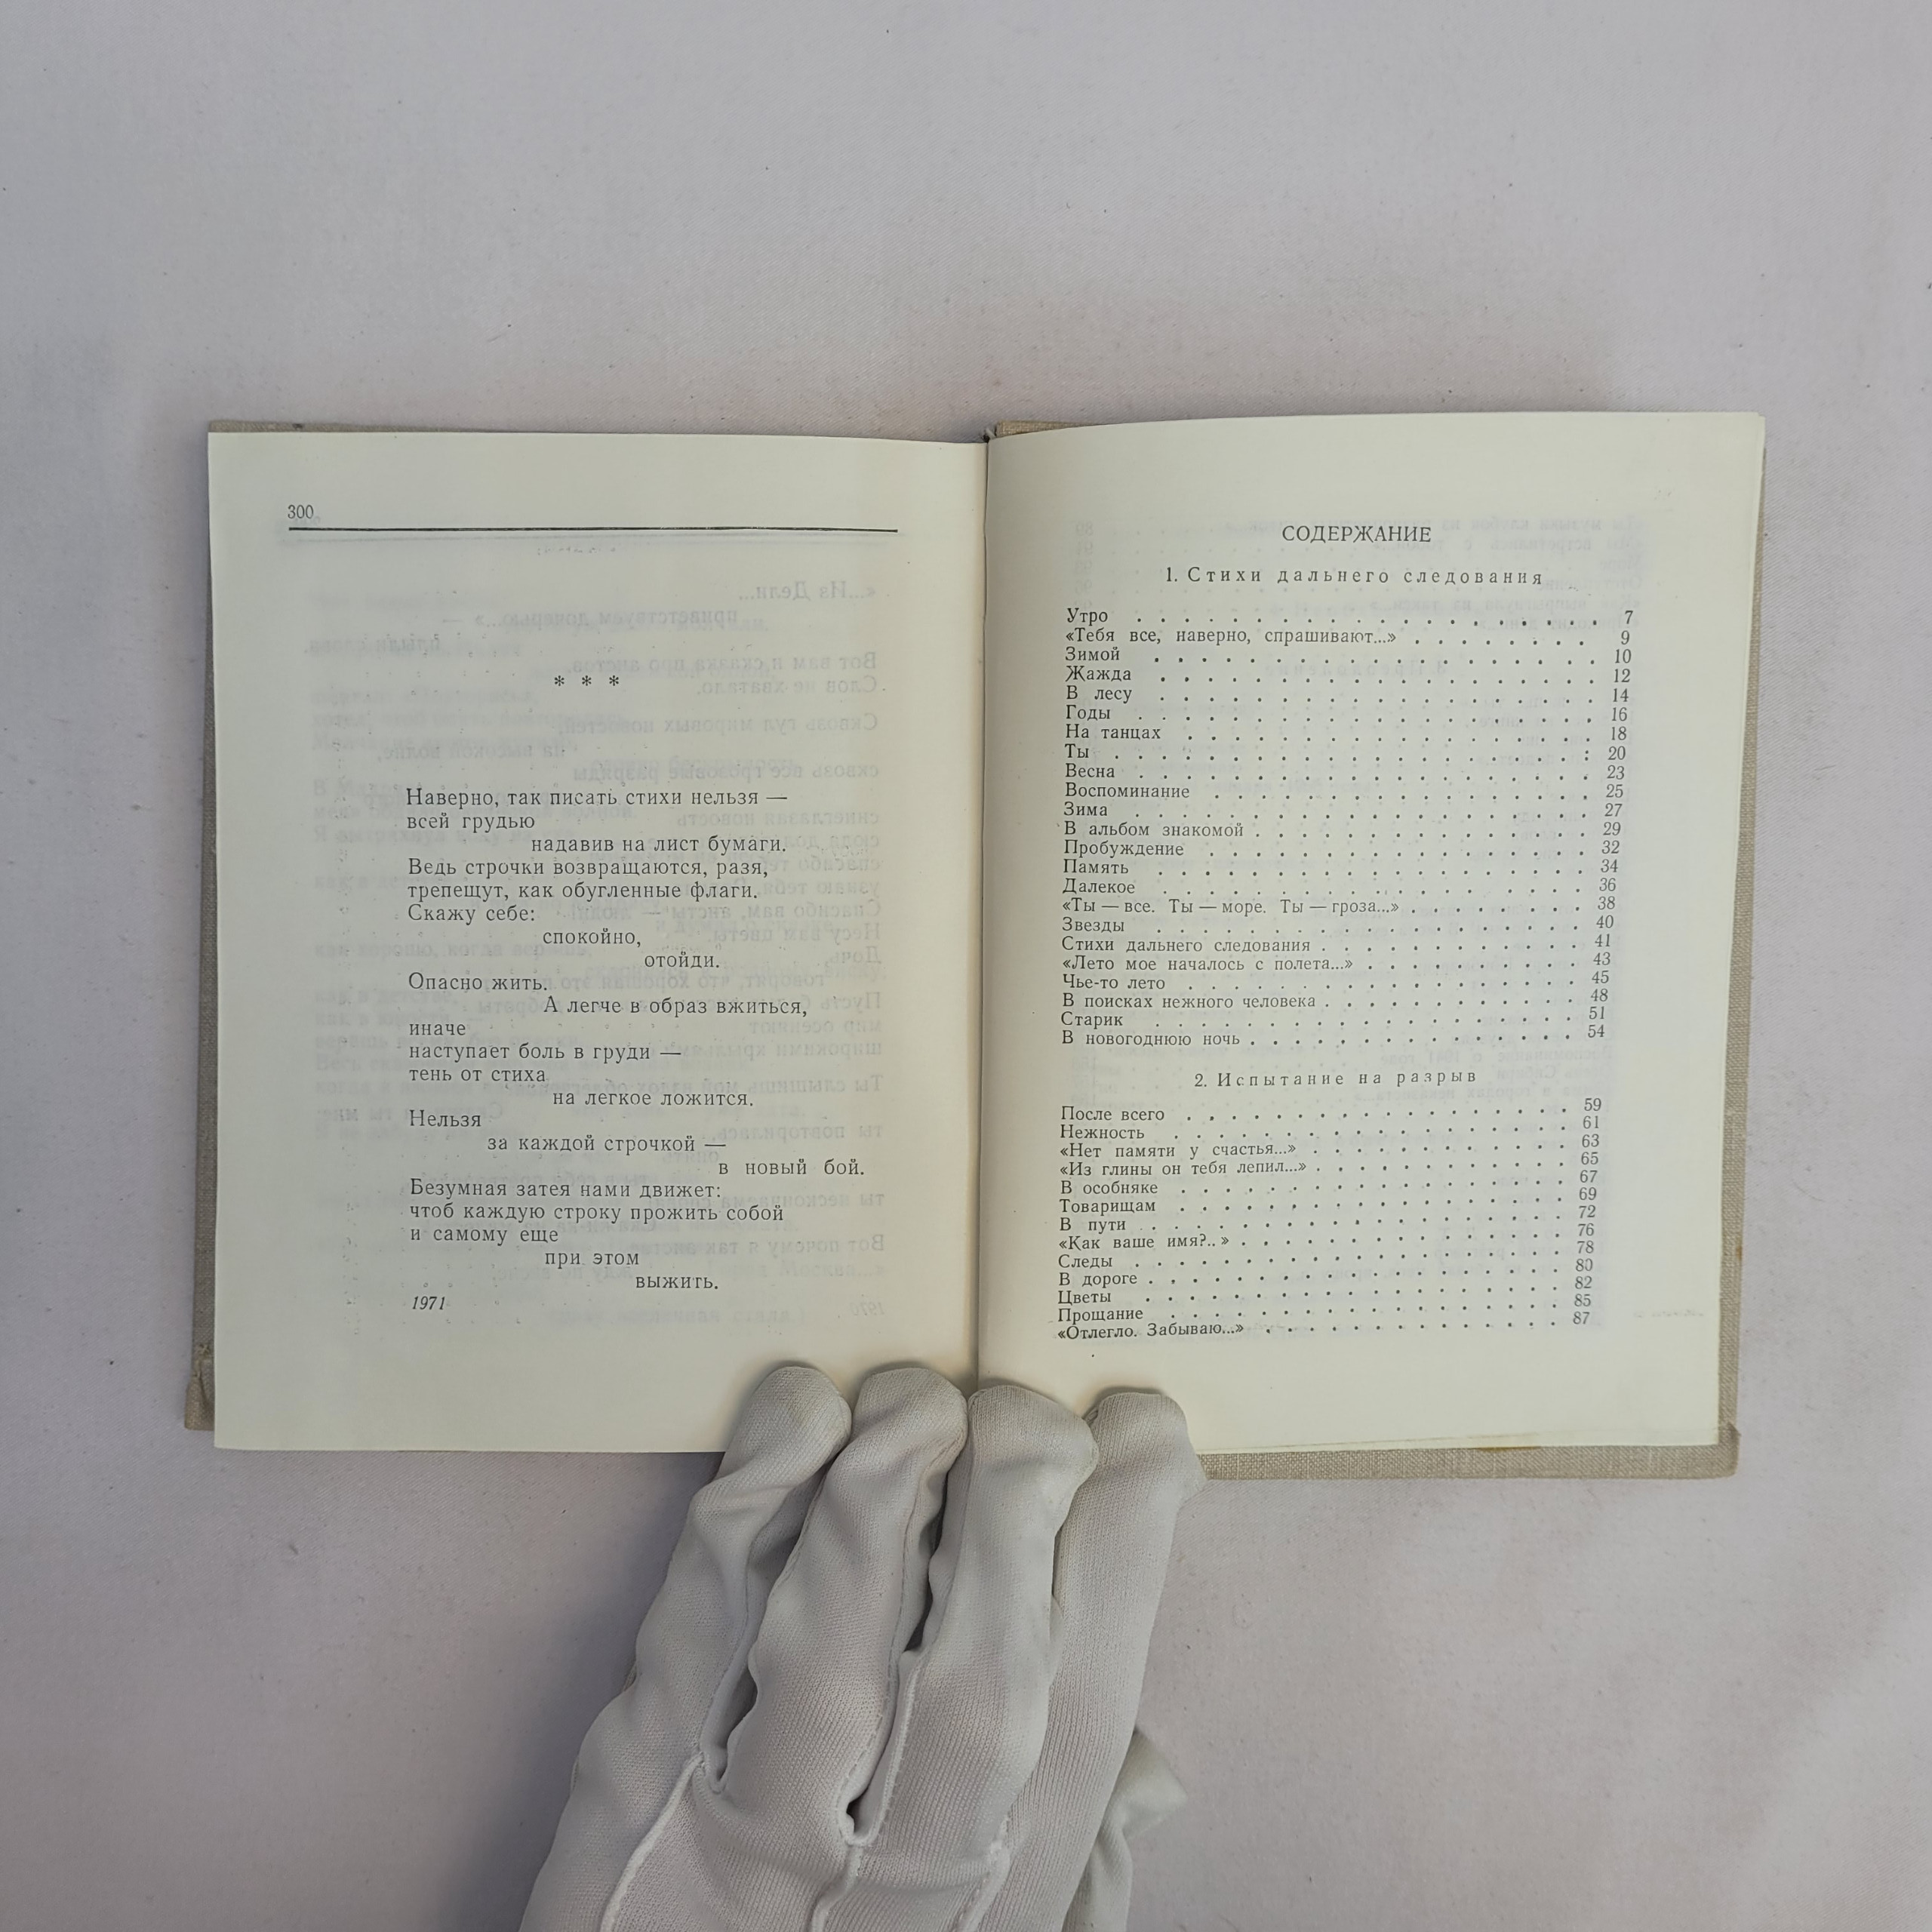 300
* * *
Наверно, так писать стихи нельзя —
всей грудью
надавив на лист бумаги.
Ведь строчки возвращаются, разя,
трепещут, как обугленные флаги.
Скажу себе:
спокойно,
отойди.
Опасно жить.
А легче в образ вжиться,
иначе
наступает боль в груди —
тень от стиха
на легкое ложится.
Нельзя
за каждой строчкой —
в новый бой.
Безумная затея нами движет:
чтоб каждую строку прожить собой
и самому еще
при этом
выжить.
1971
СОДЕРЖАНИЕ
1. Стихи дальнего следования
Утро . . . . . . . . . . . . . . . . . . . . 7
«Тебя все, наверно, спрашивают...» . . . . . . . . 9
Зимой . . . . . . . . . . . . . . . . . . . 10
Жажда . . . . . . . . . . . . . . . . . . . 12
В лесу . . . . . . . . . . . . . . . . . . . 14
Годы . . . . . . . . . . . . . . . . . . . . 16
На танцах . . . . . . . . . . . . . . . . . . 18
Ты . . . . . . . . . . . . . . . . . . . . : 20
Весна . . . . . . . . . . . . . . . . . . . 23
Воспоминание . . . . . . . . . . . . . . . . 25
Зима . . . . . . . . . . . . . . . . . . . . 27
В альбом знакомой . . . . . . . . . . . . . . 29
Пробуждение . . . . . . . . . . . . . . . . 32
Память . . . . . . . . . . . . . . . . . . 34
Далекое . . . . . . . . . . . . . . . . . . 36
«Ты — все. Ты — море. Ты — гроза...» . . . . . . . 38
Звезды . . . . . . . . . . . . . . . . . . 40
Стихи дальнего следования . . . . . . . . . . . 41
«Лето мое началось с полета...» . . . . . . . . . 43
Чье-то лето . . . . . . . . . . . . . . . . 45
В поисках нежного человека . . . . . . . . . . . 48
Старик . . . . . . . . . . . . . . . . . . 51
В новогоднюю ночь . . . . . . . . . . . . . . 54
2. Испытание на разрыв
После всего . . . . . . . . . . . . . . . . 59
Нежность . . . . . . . . . . . . . . . . . 61
«Нет памяти у счастья...» . . . . . . . . . . . 63
«Из глины он тебя лепил...» . . . . . . . . . . 65
В особняке . . . . . . . . . . . . . . . . 67
Товарищам . . . . . . . . . . . . . . . . 69
В пути . . . . . . . . . . . . . . . . . . 72
«Как ваше имя?..» . . . . . . . . . . . . . . 76
Следы . . . . . . . . . . . . . . . . . . 78
В дороге . . . . . . . . . . . . . . . . . 80
Цветы . . . . . . . . . . . . . . . . . . 82
Прощание . . . . . . . . . . . . . . . . . 85
«Отлегло. Забываю...» . . . . . . . . . . . . . 87